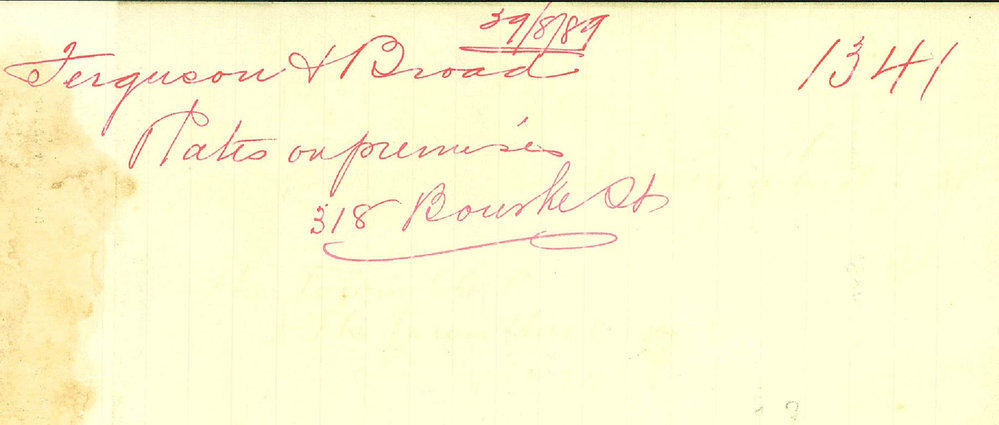 29/8/89
Ferguson & Broad 1341
Rates on premises
318 Bourke St